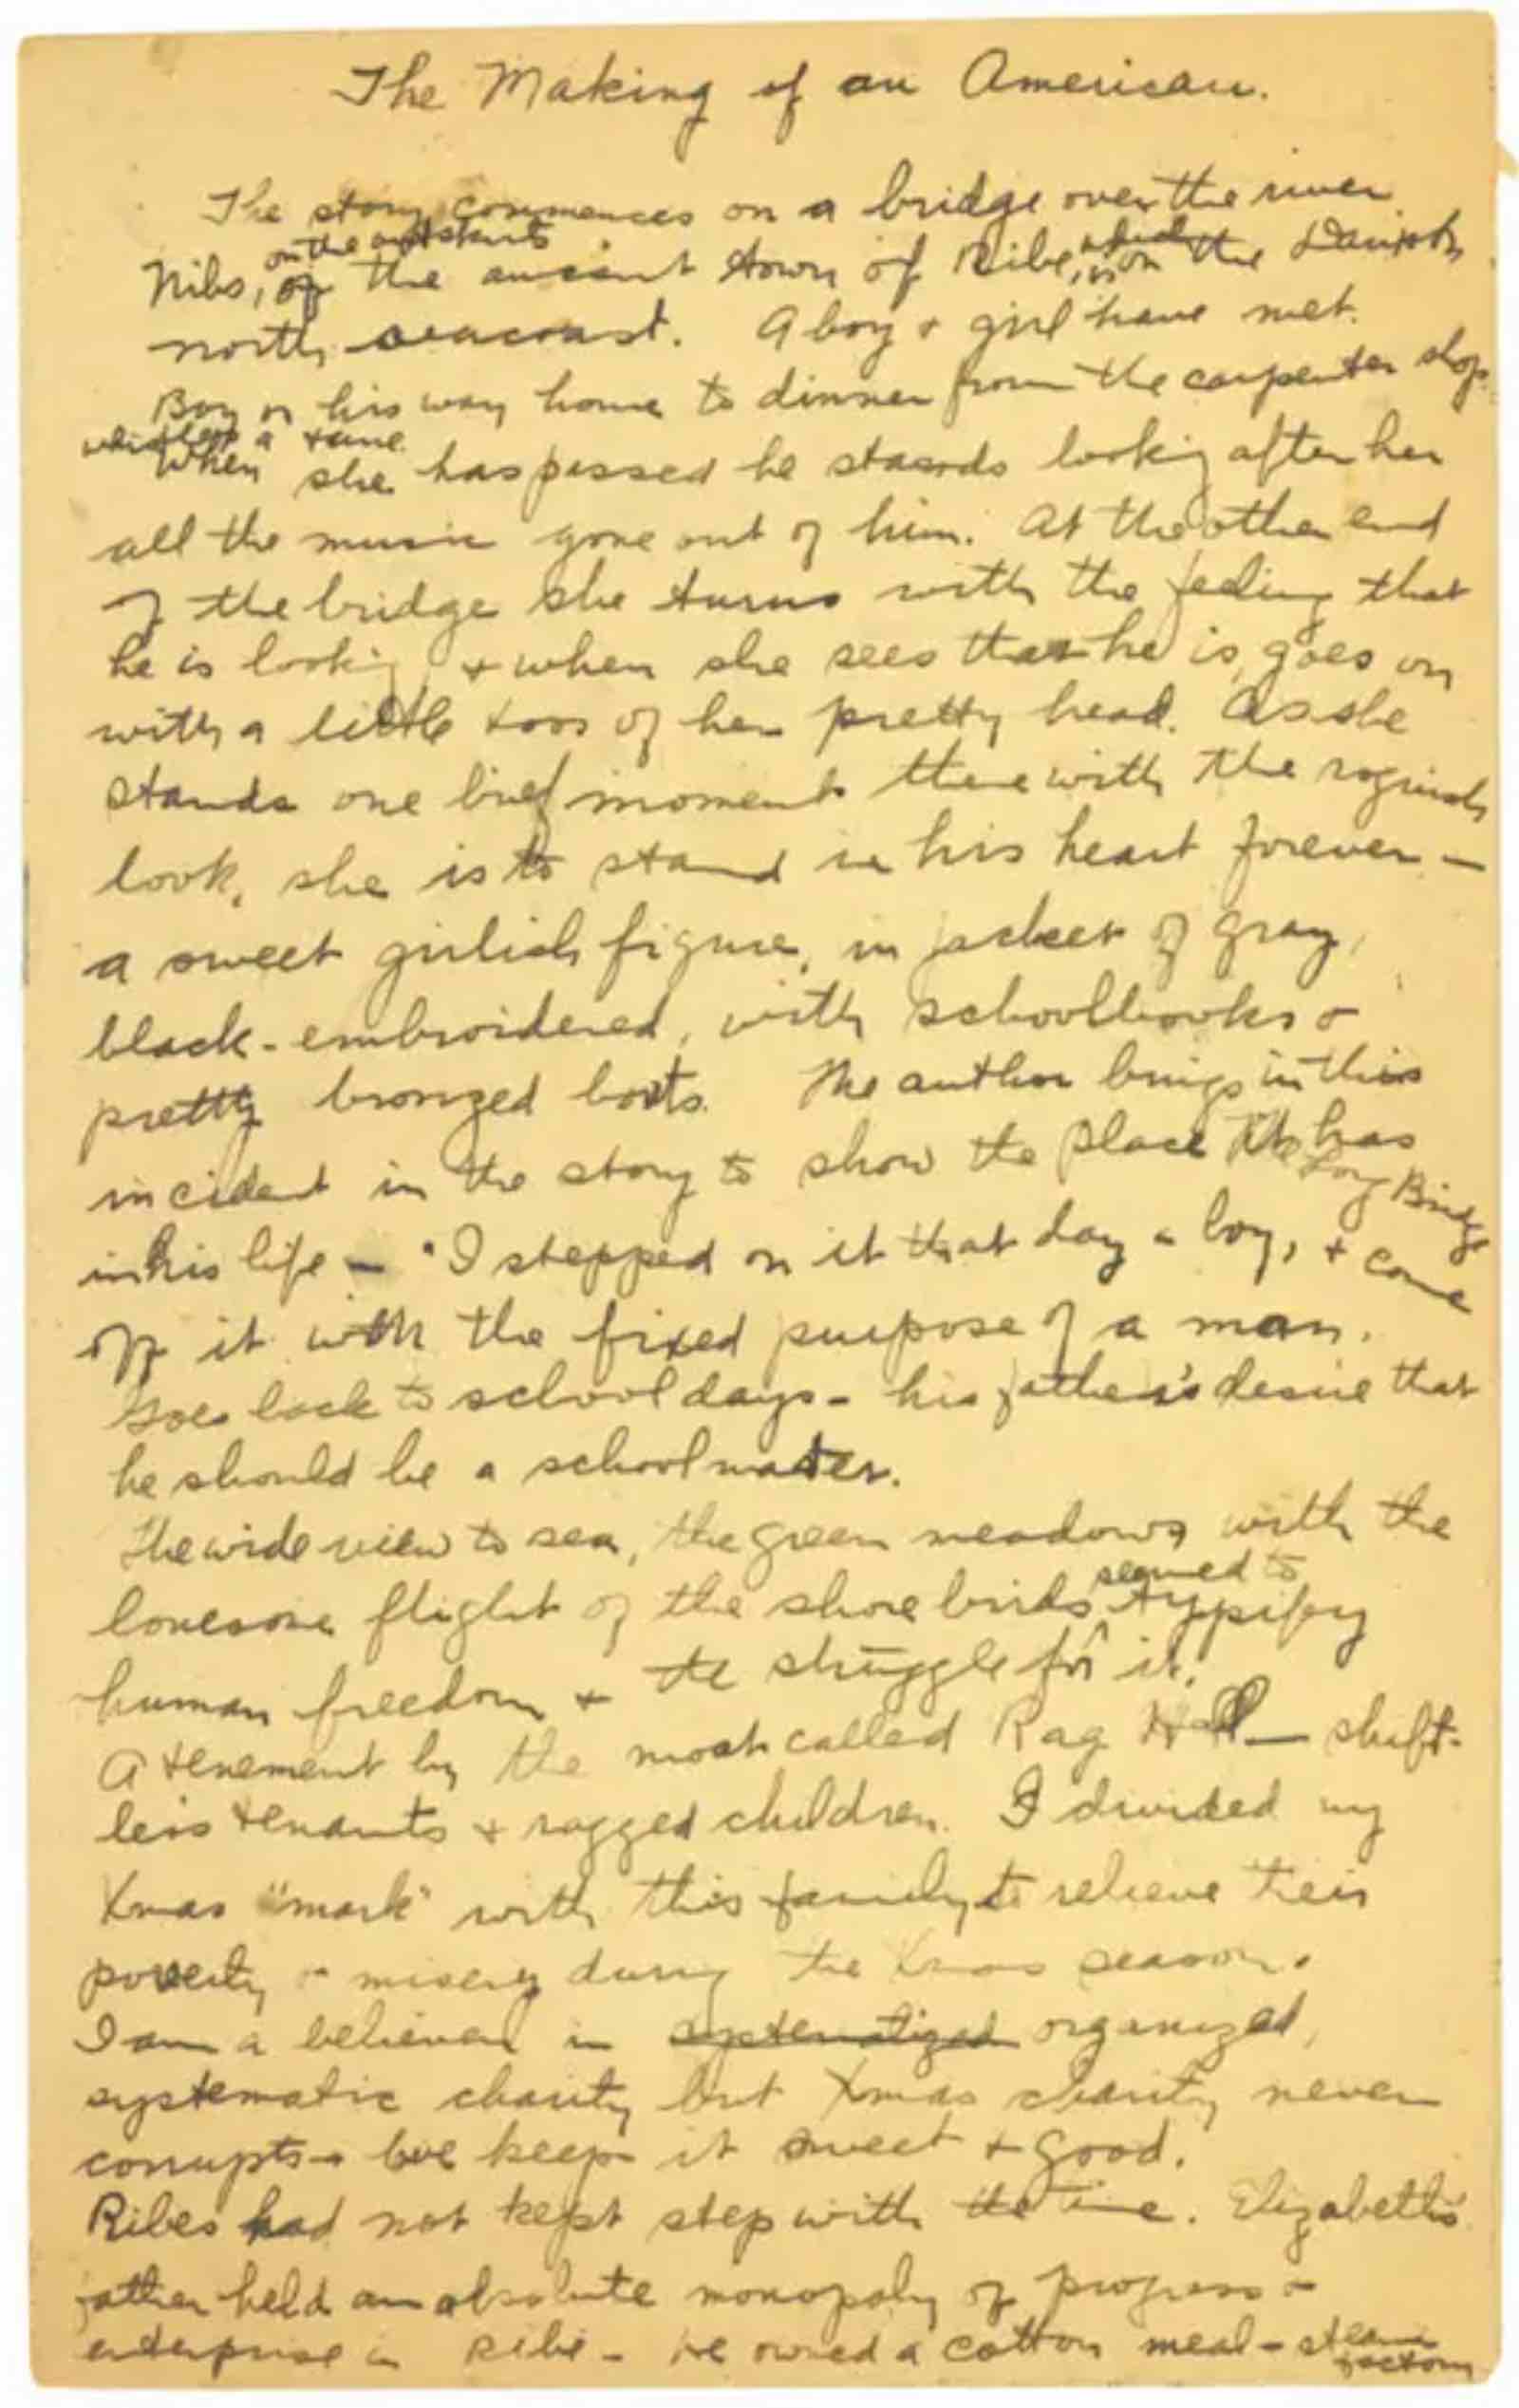 The Making of an American.
The story commences on a bridge over the river
on the outskirts which
Nibs, of the ancient town of Ribe, is on the Danish
north seacoast. A boy & girl have met.
Boy on his way home to dinner from the carpenter shop
whistles a tune.
When she has passed he stands looking after her
all the music gone out of him. At the other end
of the bridge she turns with the feeling that
he is looking & when she sees that he is, goes on
with a little toss of her pretty head. As she
stands one brief moment there with the roguish
look, she is to stand in his heart forever —
a sweet girlish figure, in jacket of gray,
black-embroidered, with schoolbooks &
pretty bronzed boots. The author brings in this
incident in the story to show the place the Long Bridge has
in his life — "I stepped on it that day a boy, & came
off it with the fixed purpose of a man.
Goes back to school days - his father's desire that
he should be a schoolmaster.
The wide view to sea, the green meadows with the
seemed to
lonesome flight of the shore birds, typify
human freedom & the struggle for it.
A tenement by the moat called Rag Hall — shift-
less tenants & ragged children. I divided my
Xmas "mark" with this family to relieve their
poverty & misery during the Xmas season.
I am a believer in systematized organized,
systematic charity but Xmas charity never
corrupts - love keeps it sweet & good.
Ribes had not kept step with the time. Elizabeth's
father held an absolute monopoly of progress &
enterprise in Ribe - He owned a cotton meal - steam
factory